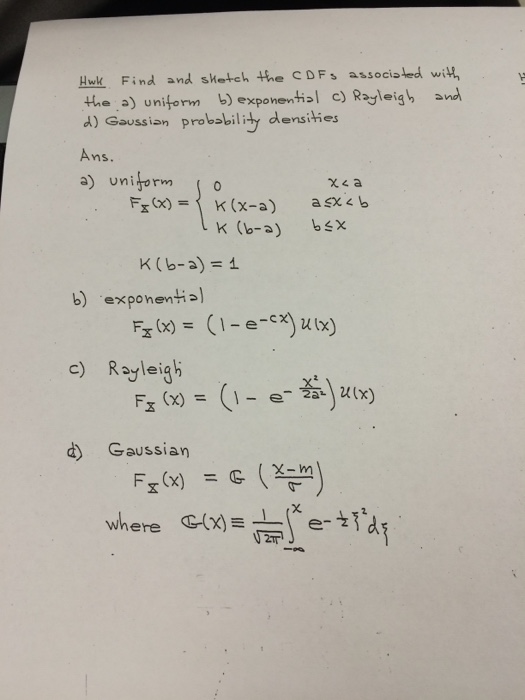 Hwk Find and sketch the CDFs associated with
the a) uniform b) exponential c) Rayleigh and
d) Gaussian probability densities
Ans.
a) uniform
F_X(x) = { 0 x < a
K(x-a) a ≤ x < b
K(b-a) b ≤ x
K(b-a) = 1
b) exponential
F_X(x) = (1 - e^{-cx}) u(x)
c) Rayleigh
F_X(x) = (1 - e^{-x²/2a²}) u(x)
d) Gaussian
F_X(x) = G((x-m)/σ)
where G(x) ≡ 1/√2π ∫_{-∞}^{x} e^{-½ξ²} dξ